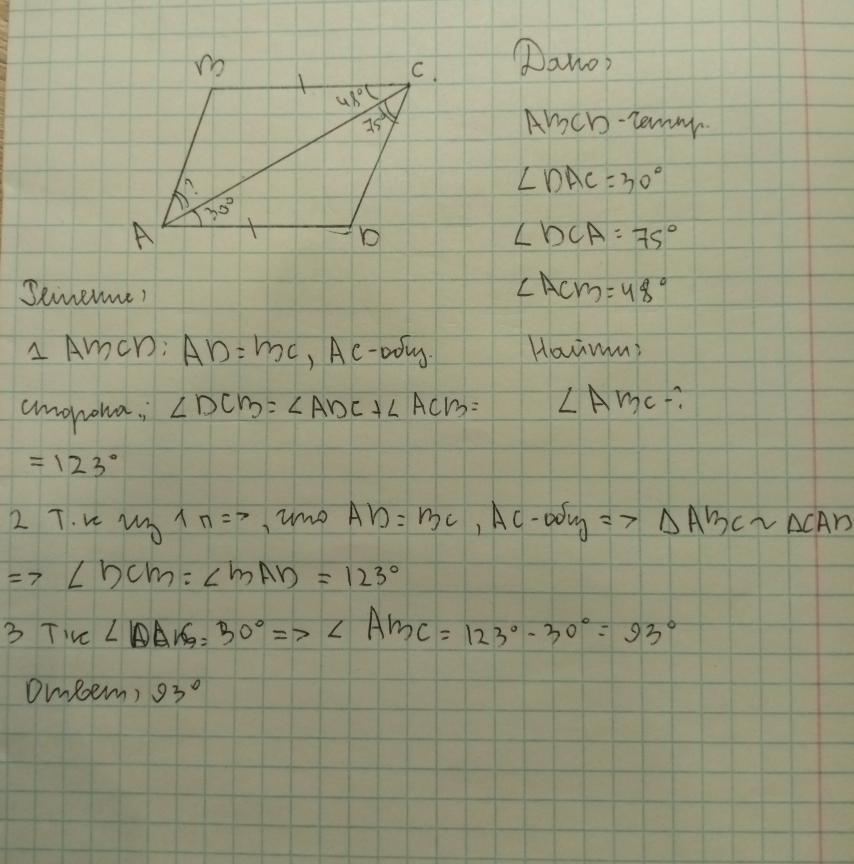 B
C.
48°
75°
?
30°
A
D
Дано:
ABCD - четыр.
∠DAC = 30°
∠DCA = 75°
∠ACB = 48°
Найти:
∠ABC - ?
Решение:
1 ABCD: AD = BC, AC - общ.
сторона; ∠DCB = ∠ADC + ∠ACB =
= 123°
2 Т.к из 1 п =>, что AD = BC, AC - общ => ΔABC ~ ΔCAD
=> ∠DCB = ∠BAD = 123°
3 Т.к ∠ = 30° => ∠ ABC = 123° - 30° = 93°
Ответ: 93°